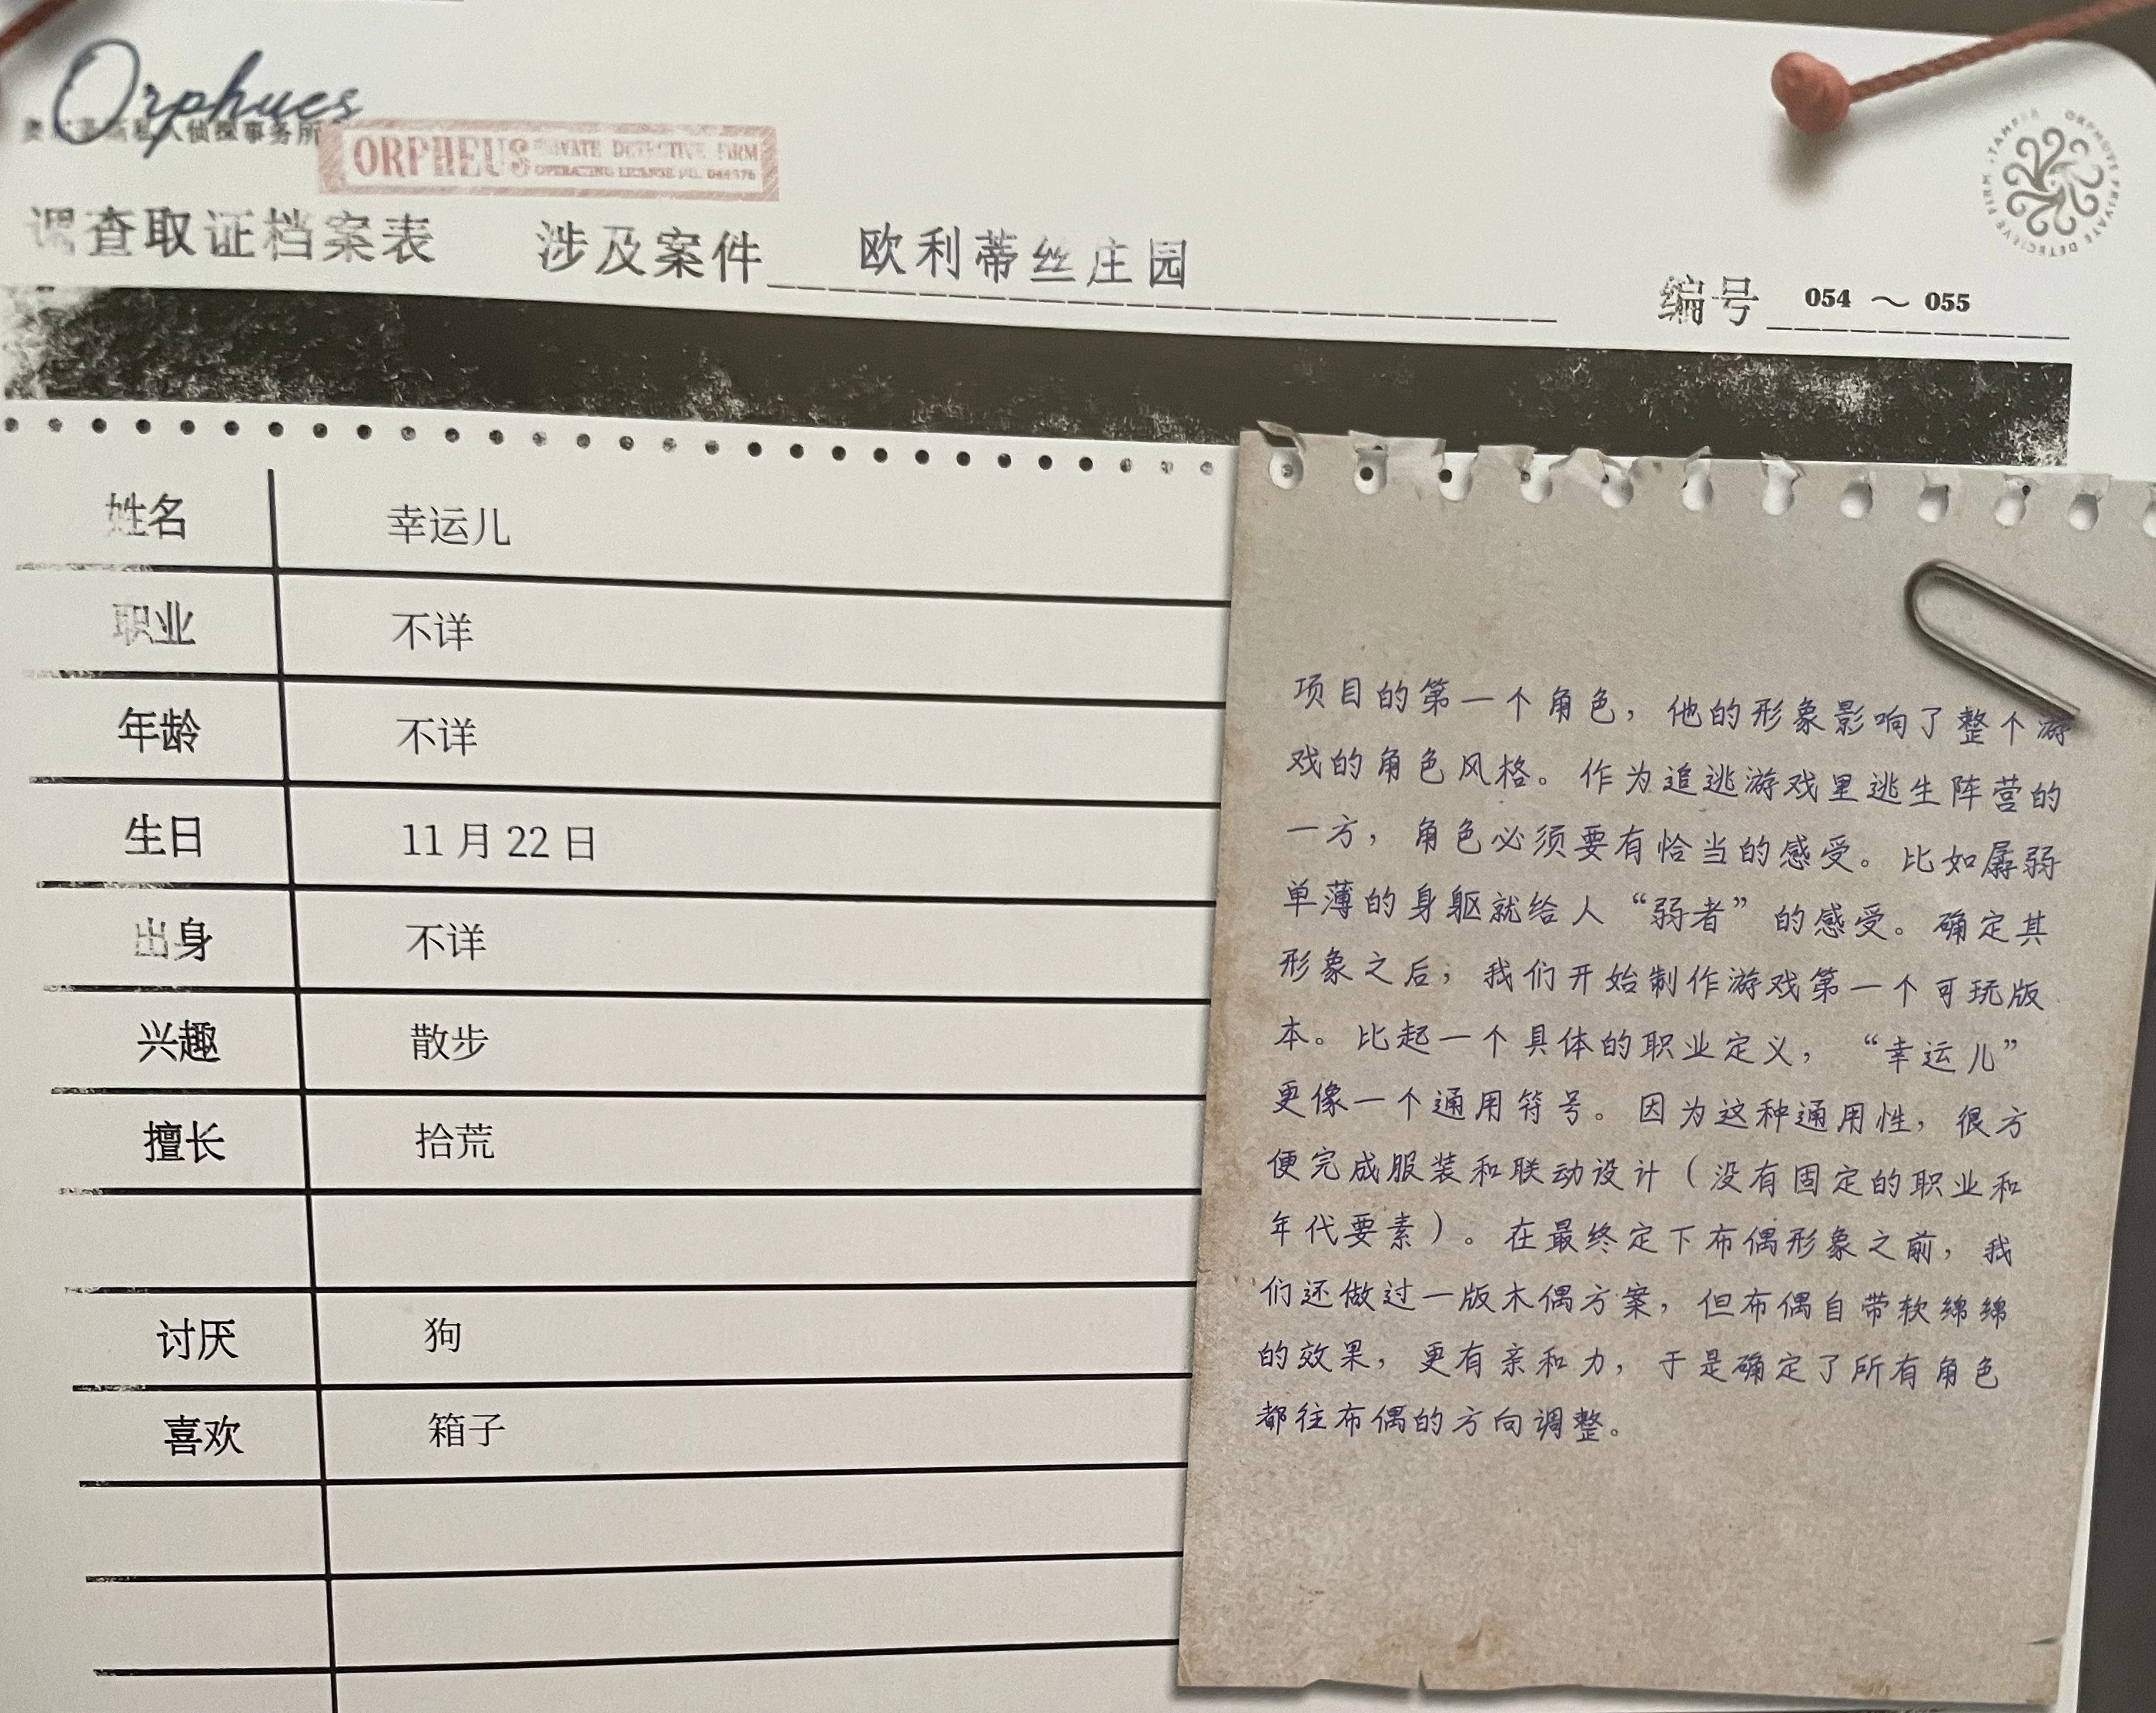 Orphues
人侦探事务所
ORPHEUS PRIVATE DETECTIVE FIRM
OPERATING LICENSE
调查取证档案表 涉及案件 欧利蒂丝庄园
编号 054 ～ 055
姓名 幸运儿
职业 不详
年龄 不详
生日 11 月 22 日
出身 不详
兴趣 散步
擅长 拾荒
讨厌 狗
喜欢 箱子
项目的第一个角色，他的形象影响了整个游
戏的角色风格。作为追逃游戏里逃生阵营的
一方，角色必须要有恰当的感受。比如孱弱
单薄的身躯就给人“弱者”的感受。确定其
形象之后，我们开始制作游戏第一个可玩版
本。比起一个具体的职业定义，“幸运儿”
更像一个通用符号。因为这种通用性，很方
便完成服装和联动设计（没有固定的职业和
年代要素）。在最终定下布偶形象之前，我
们还做过一版木偶方案，但布偶自带软绵绵
的效果，更有亲和力，于是确定了所有角色
都往布偶的方向调整。